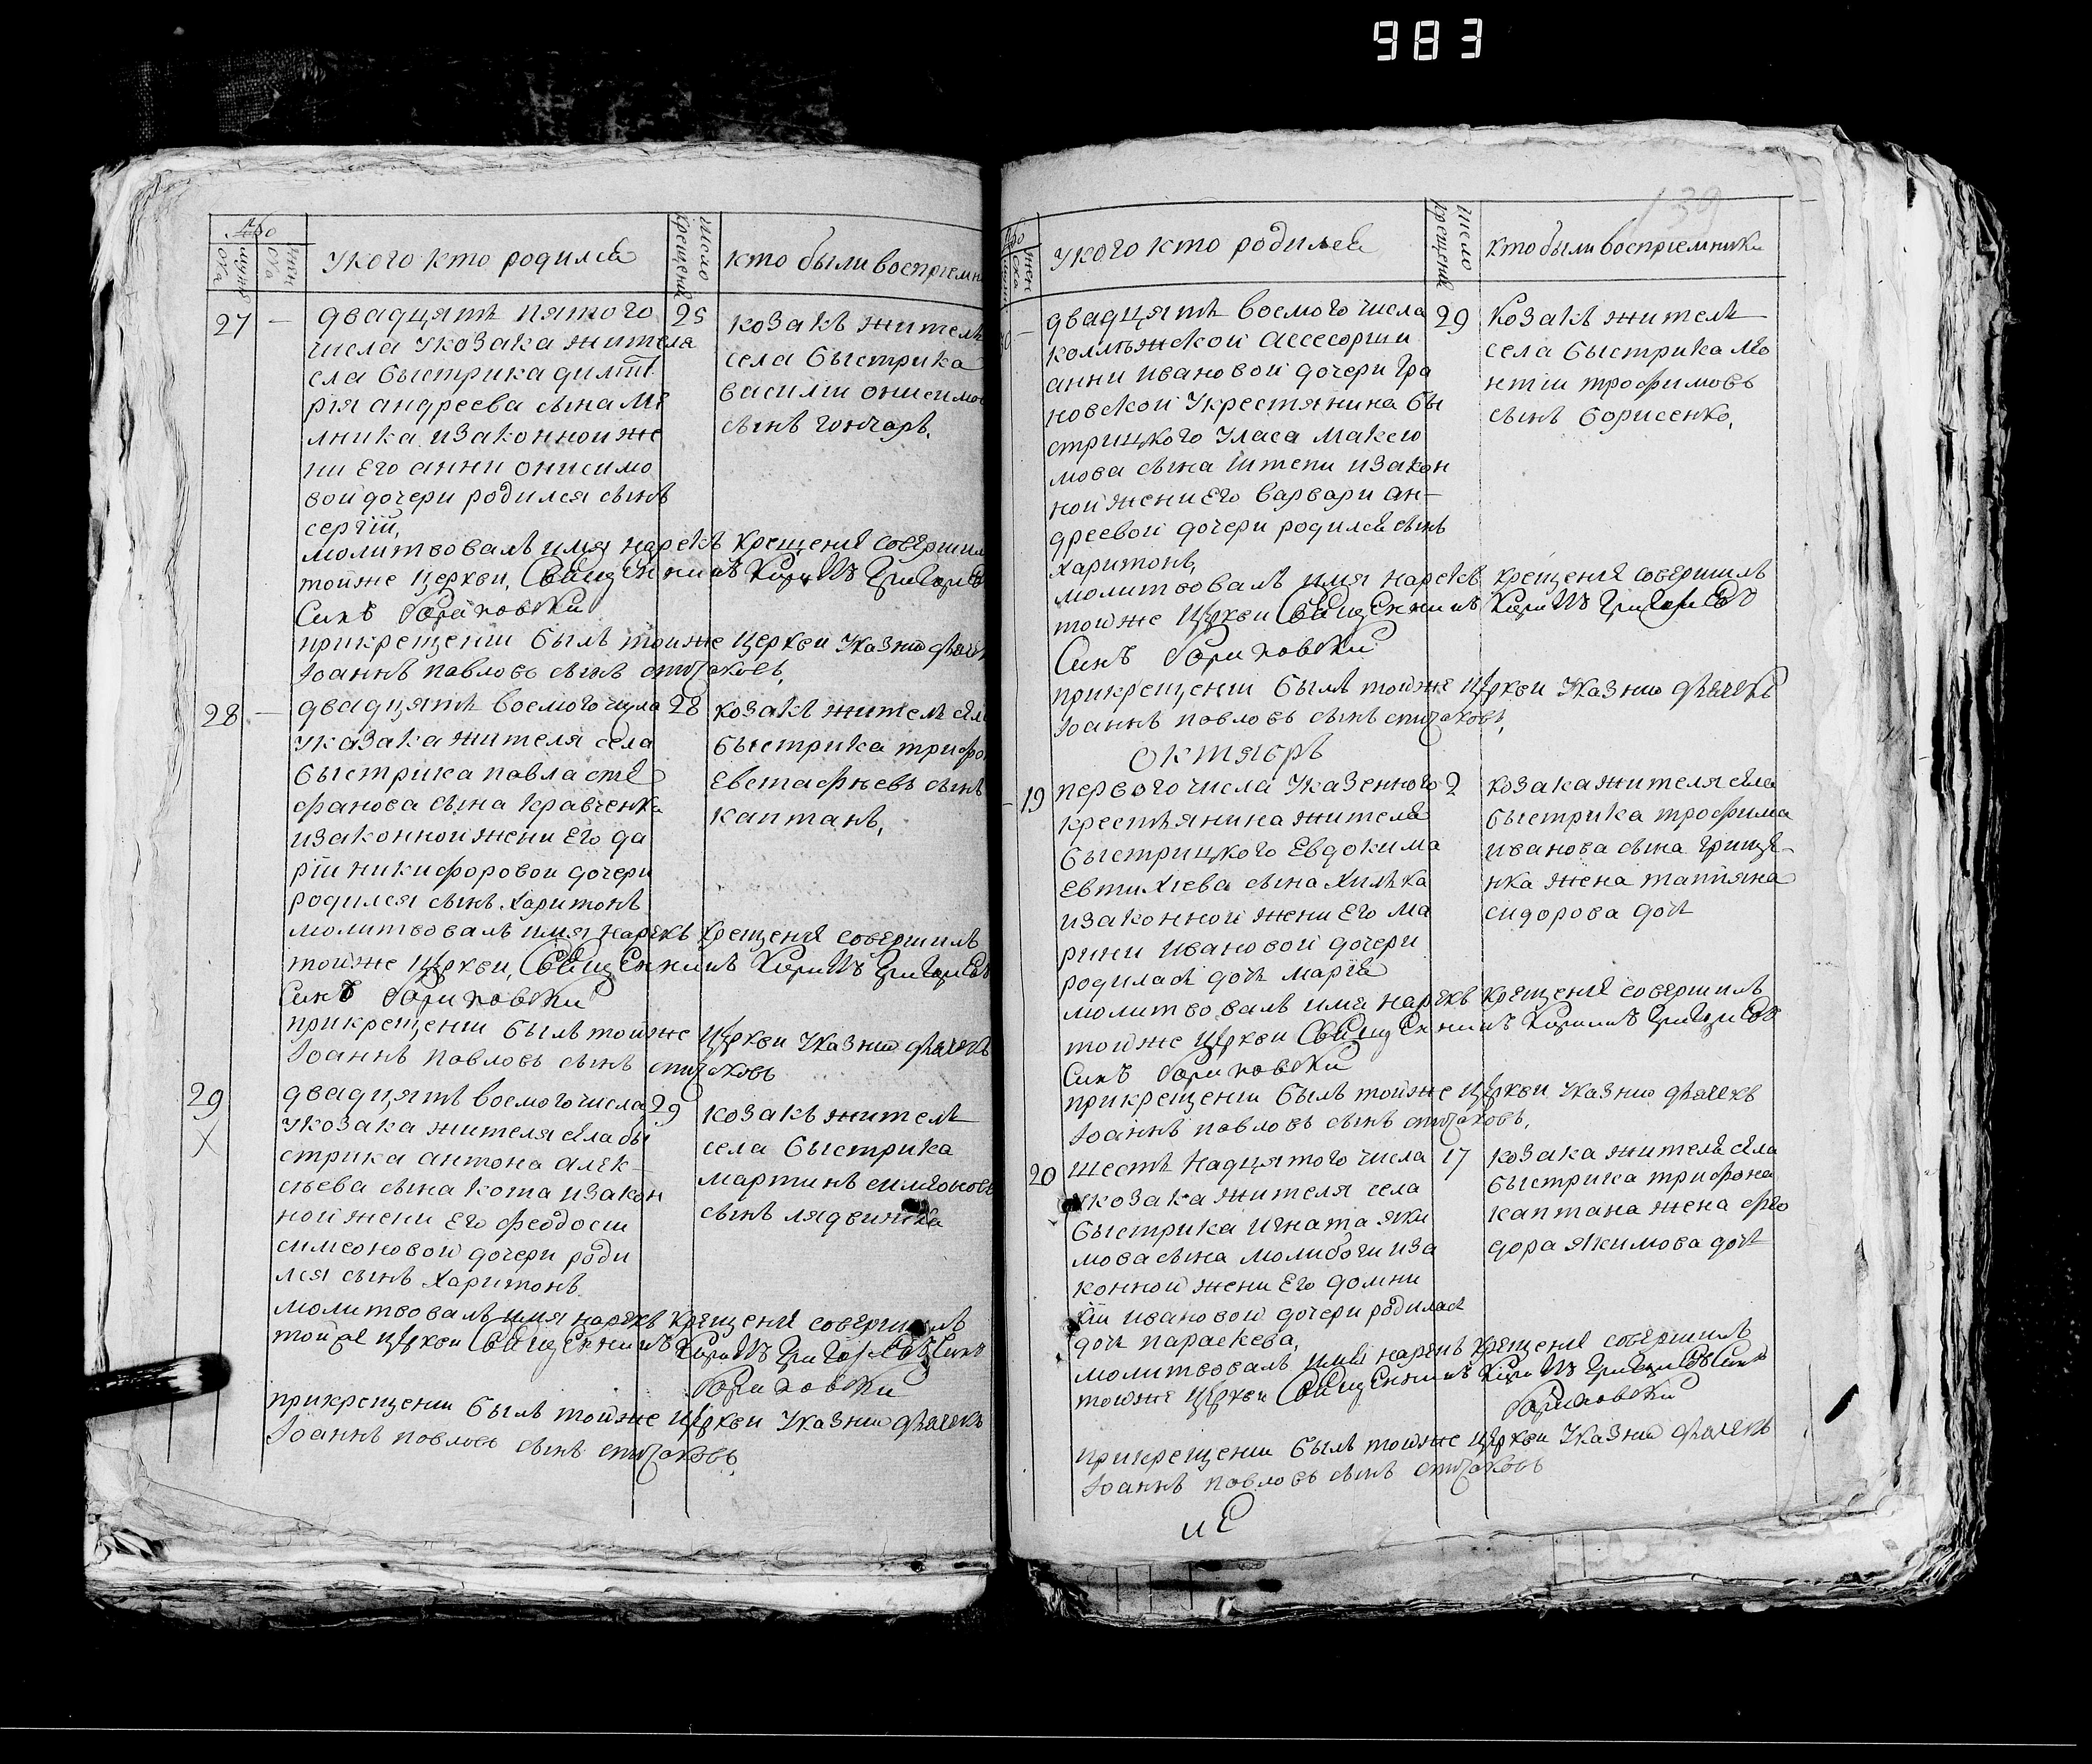 983
139
№
муже
ска
жен
ска
У кого кто родился
число
крещения
кто были восприемн
27 —
двадцять пятого
числа У козака жителя
села быстрика димит
рія андреева сына Ме
лника изаконной же
ни Его анни онисимо
вой дочери родился сынъ
сергій,
25
козакъ житель
села быстрика
василій онисимо
сынъ гончаръ,
молитвовалъ имя нарекъ крещение совершил
тойже церкви, Священникъ Кириллъ Григориев
Синъ
прикрещении былъ тойже церкви Указний дьячек
Іоаннъ павловъ сынъ
28 —
двадцять восмого числа
У казака жителя села
быстрика павла сте
фанова сына кравченка
изаконной жени Его да
рїи никифоровой дочери
родился сынъ харитонъ
28
козакъ житель сел
быстрика трифо
Евстафьевъ сынъ
каптанъ,
молитвовалъ имя нарекъ крещение совершилъ
тойже церкви, Священникъ Кириллъ Григориев
Синъ
прикрещении былъ тойже церкви Указний дьячекъ
Іоаннъ павловъ сынъ
29
X
двадцять восмого числа
У козака жителя села бы
стрика антона алек-
сѣева сына кота изакон
ной жени Его феодосии
симеоновой дочери роди
лся сынъ харитонъ
29
козакъ житель
села быстрика
мартинъ симеоновъ
сынъ
молитвовалъ имя нарекъ крещение совершилъ
тойже церкви Священникъ Кириллъ Григориевъ Синъ
прикрещении былъ тойже церкви Указний дьячекъ
Іоаннъ павловъ сынъ
№
жен
ска
У кого кто родился
число
крещения
кто были восприемники
двадцять восмого числа
колѣжской асесоршии
анни ивановой дочери гра
новской У крестянина бы
стрицкого Уласа макси
мова сына изакон
ной жени Его варвари ан-
дреевой дочери родился сынъ
харитонъ,
29
козакъ житель
села быстрика лео
нтий трофимовъ
сынъ борисенко,
молитвовалъ имя нарекъ крещение совершилъ
тойже церкви Священникъ Кириллъ Григориевъ
Синъ
прикрещении былъ тойже церкви Указний дьячекъ
Іоаннъ павловъ сынъ
октябрь
— 19
первого числа У казенного
крестьянина жителя
быстрицкого Евдокима
Евтихіева сына хилька
изаконной жени Его ма
рини ивановой дочери
родилась дочь марія
2
козака жителя села
быстрика трофима
иванова сына грище-
нка жена татіяна
сидорова дочь
молитвовалъ имя нарекъ крещение совершилъ
тойже церкви Священникъ Кириллъ Григориевъ
Синъ
прикрещении былъ тойже церкви Указний дьячекъ
Іоаннъ павловъ сынъ
20
шесть надцятого числа
У козака жителя села
быстрика игната яки
мова сына молибоги иза
конной жени Его домни
кіи ивановой дочери родилась
дочь параскева,
17
козака жителя села
быстрика трифона
каптана жена фео
дора якимова дочь
молитвовалъ имя нарекъ крещение совершилъ
тойже церкви Священникъ Кириллъ Григориевъ Синъ
прикрещении былъ тойже церкви Указний дьячекъ
Іоаннъ павловъ сынъ